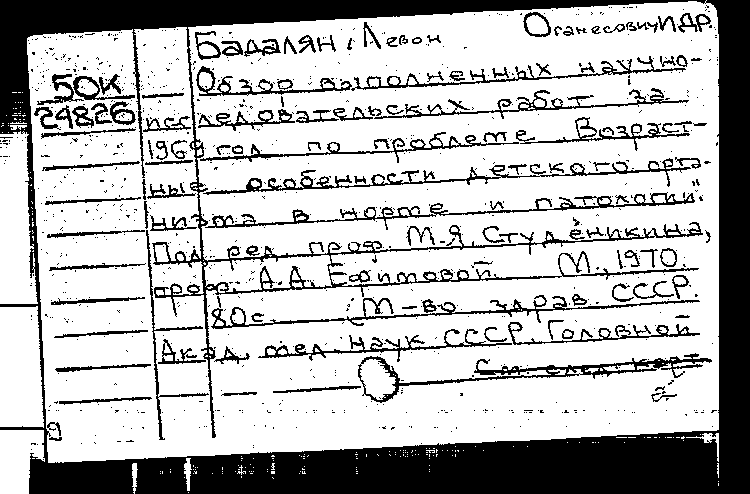 Бадалян, Левон Оганесович И ДР.
50К
24826
Обзор выполненных научно-
исследовательских работ за
1969 год по проблеме „Возраст-
ные особенности детского орга-
низма в норме и патологии".
Под ред. проф. М.Я. Студёникина,
проф. А.А. Ефимовой. М., 1970.
80с. (М-во здрав. СССР.
Акад. мед. наук СССР. Головной
См. след. карт.
9